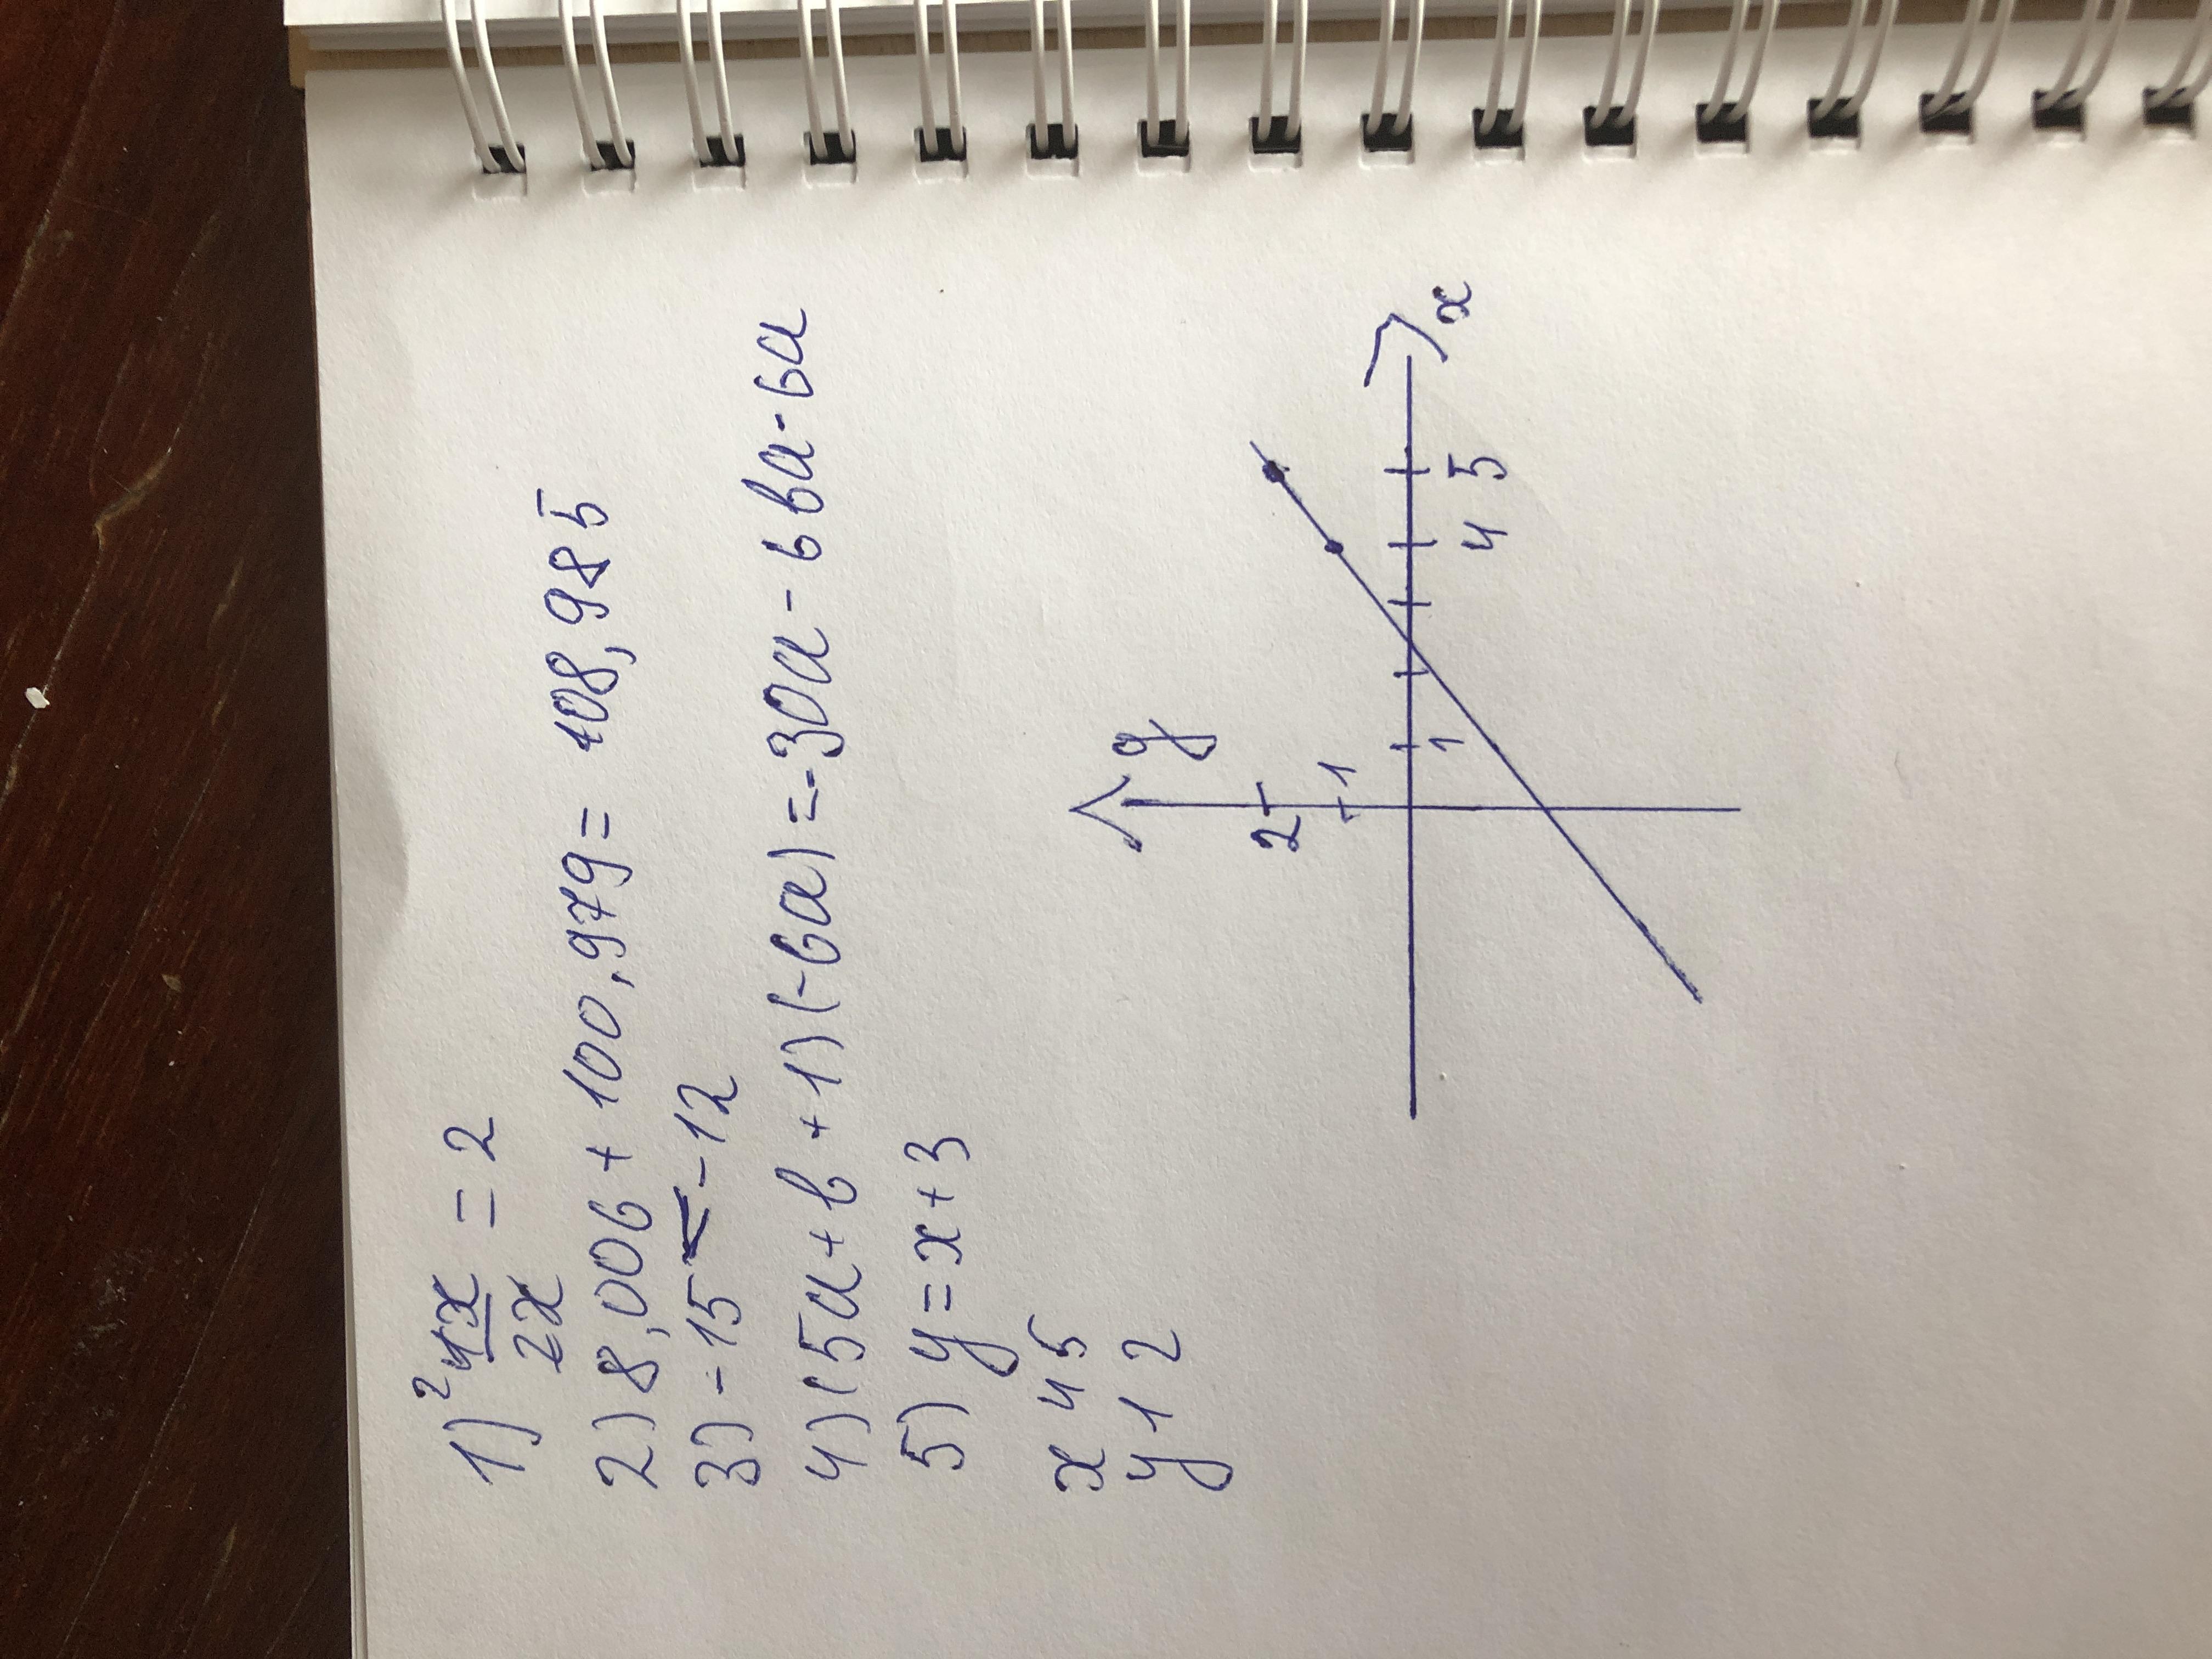 1) ²4x/2x = 2
2) 8,006 + 100,979 = 108,985
3) -15 < -12
4) (5a + b + 1)(-6a) = -30a - 6ba - 6a
5) y = x + 3
x 4 5
y 1 2
y
2
1
1 4 5 x